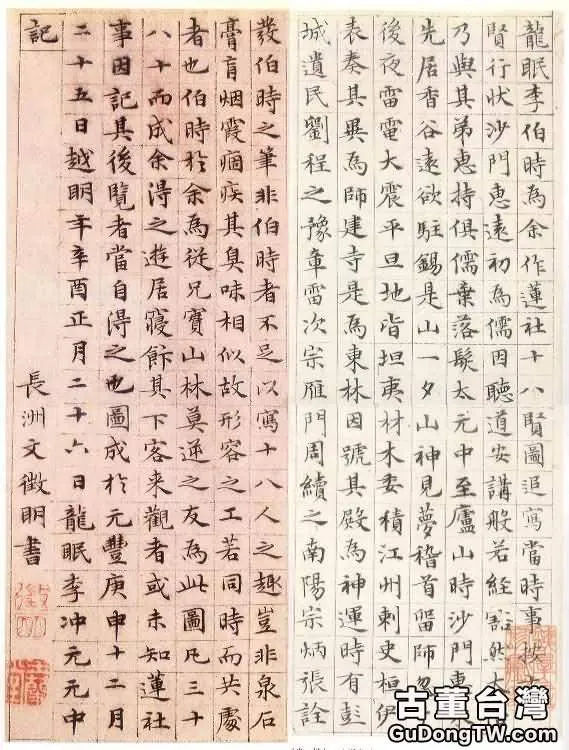 龍眠李伯時為余作蓮社十八賢圖追寫當時事按十
賢行狀沙門惠遠初為儒因聽道安講般若經豁然大
乃與其弟惠持俱儒棄落髮太元中至廬山時沙門惠
先居香谷遠欲駐錫是山一夕山神見夢稽首留師忽
後夜雷電大震平旦地皆坦夷材木委積江州刺史桓伊
表奏其異為師建寺是為東林因號其殿為神運時有彭
城遺民劉程之豫章雷次宗雁門周續之南陽宗炳張詮
發伯時之筆非伯時者不足以寫十八人之趣豈非泉石
膏肓烟霞痼疾其臭味相似故形容之工若同時而共處
者也伯時於余為從兄實山林莫逆之友為此圖凡三十
八十而成余得之遊居寢飰其下客來觀者或未知蓮社
事因記其後覽者當自得之也圖成於元豐庚申十二月
二十五日越明年辛酉正月二十六日龍眠李冲元元中
記
長洲文徵明書
古董台灣
GuDongTW.com